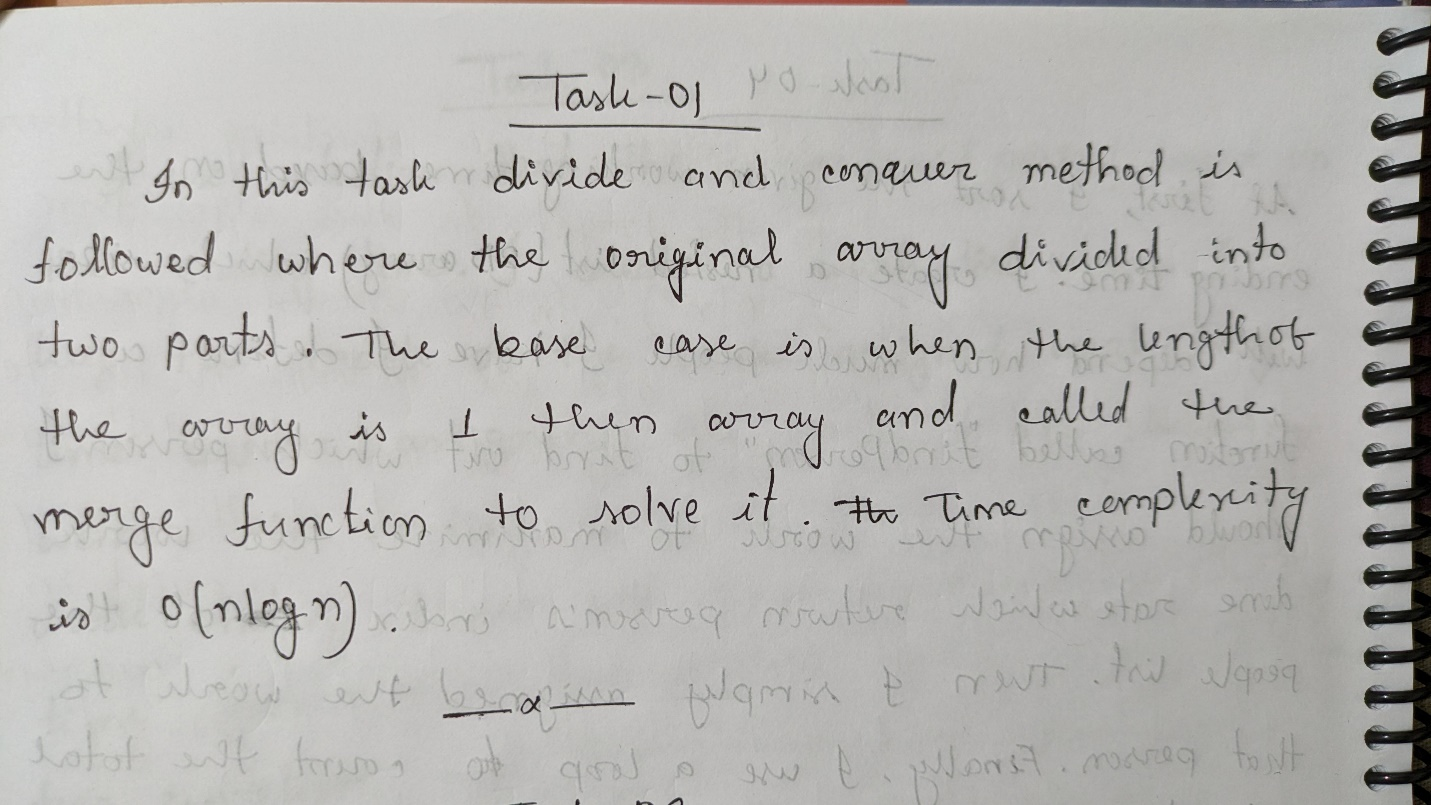 Task-01
In this task divide and conquer method is
followed where the original array divided into
two parts. The base case is when the length of
the array is 1 then array and called the
merge function to solve it. Time complexity
is O(nlogn).